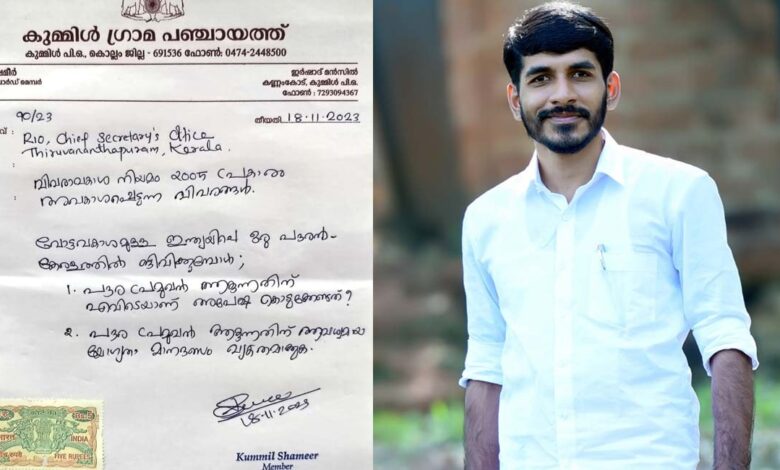 കുമ്മിൾ ഗ്രാമ പഞ്ചായത്ത്
കുമ്മിൾ പി.ഒ., കൊല്ലം ജില്ല - 691536 ഫോൺ: 0474-2448500
മീർ
ാർഡ് മെമ്പർ
ഇർഷാദ് മൻസിൽ
കണ്ണംകോട്, കുമ്മിൾ പി.ഒ.
ഫോൺ : 7293094367
90/23
തീയതി 18-11-2023
RIO, Chief Secretary's Office
Thiruvananthapuram, Kerala.
വിവരാവകാശ നിയമം 2005 പ്രകാരം
അവകാശപ്പെടുന്ന വിവരങ്ങൾ.
വോട്ടവകാശമുള്ള ഇന്ത്യയിലെ ഒരു പൗരൻ-
കേരളത്തിൽ ജീവിക്കുമ്പോൾ;
1. പൗര പ്രമുഖൻ ആകുന്നതിന്
എവിടെയാണ് അപേക്ഷ കൊടുക്കേണ്ടത്?
2. പൗര പ്രമുഖൻ ആകുന്നതിന് ആവശ്യമായ
യോഗ്യത, മാനദണ്ഡം വ്യക്തമാക്കുക.
18-11-2023
Kummil Shameer
Member
INDIA
FIVE RUPEES